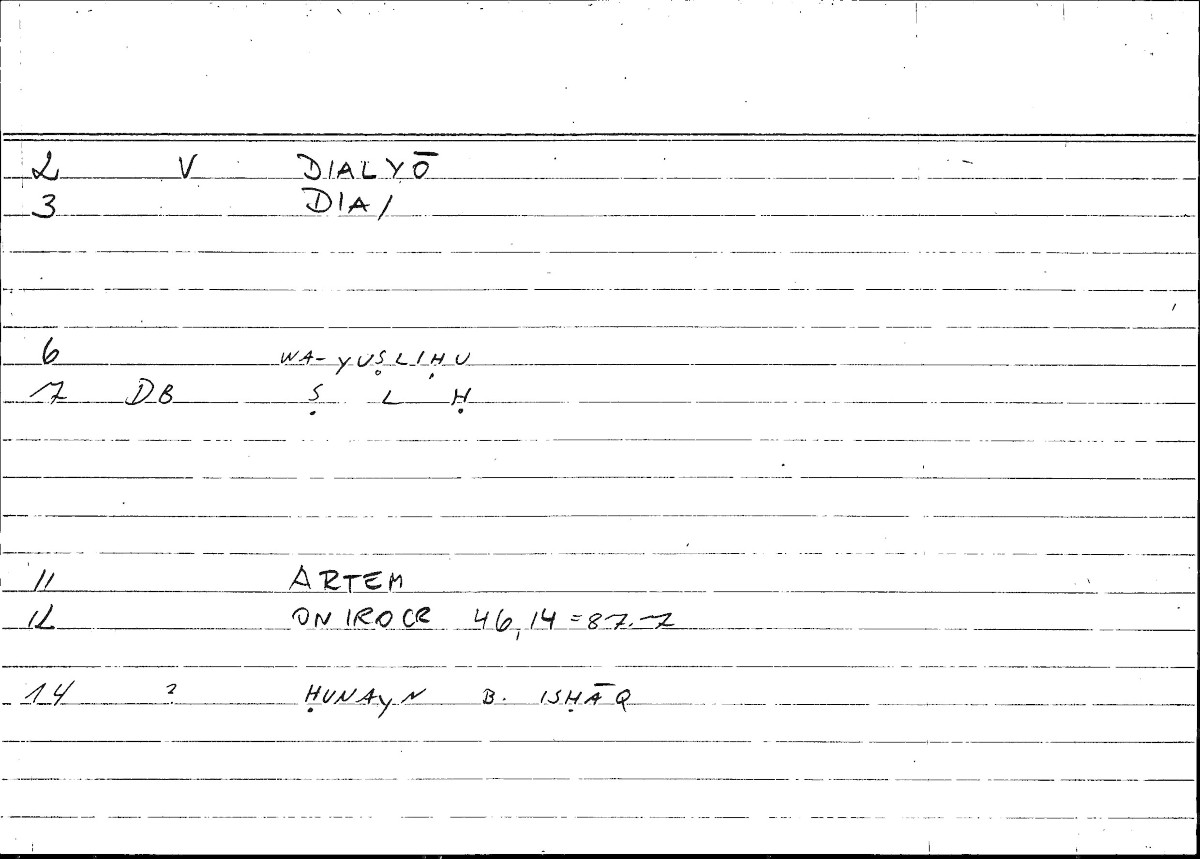 2 V DIALYŌ
3 DIA/
6 WA-YUṢLIḤU
7 DB Ṣ L Ḥ
11 ARTEM
12 ONIROCR 46,14=87.7
14 ? ḤUNAYN B. ISḤĀQ